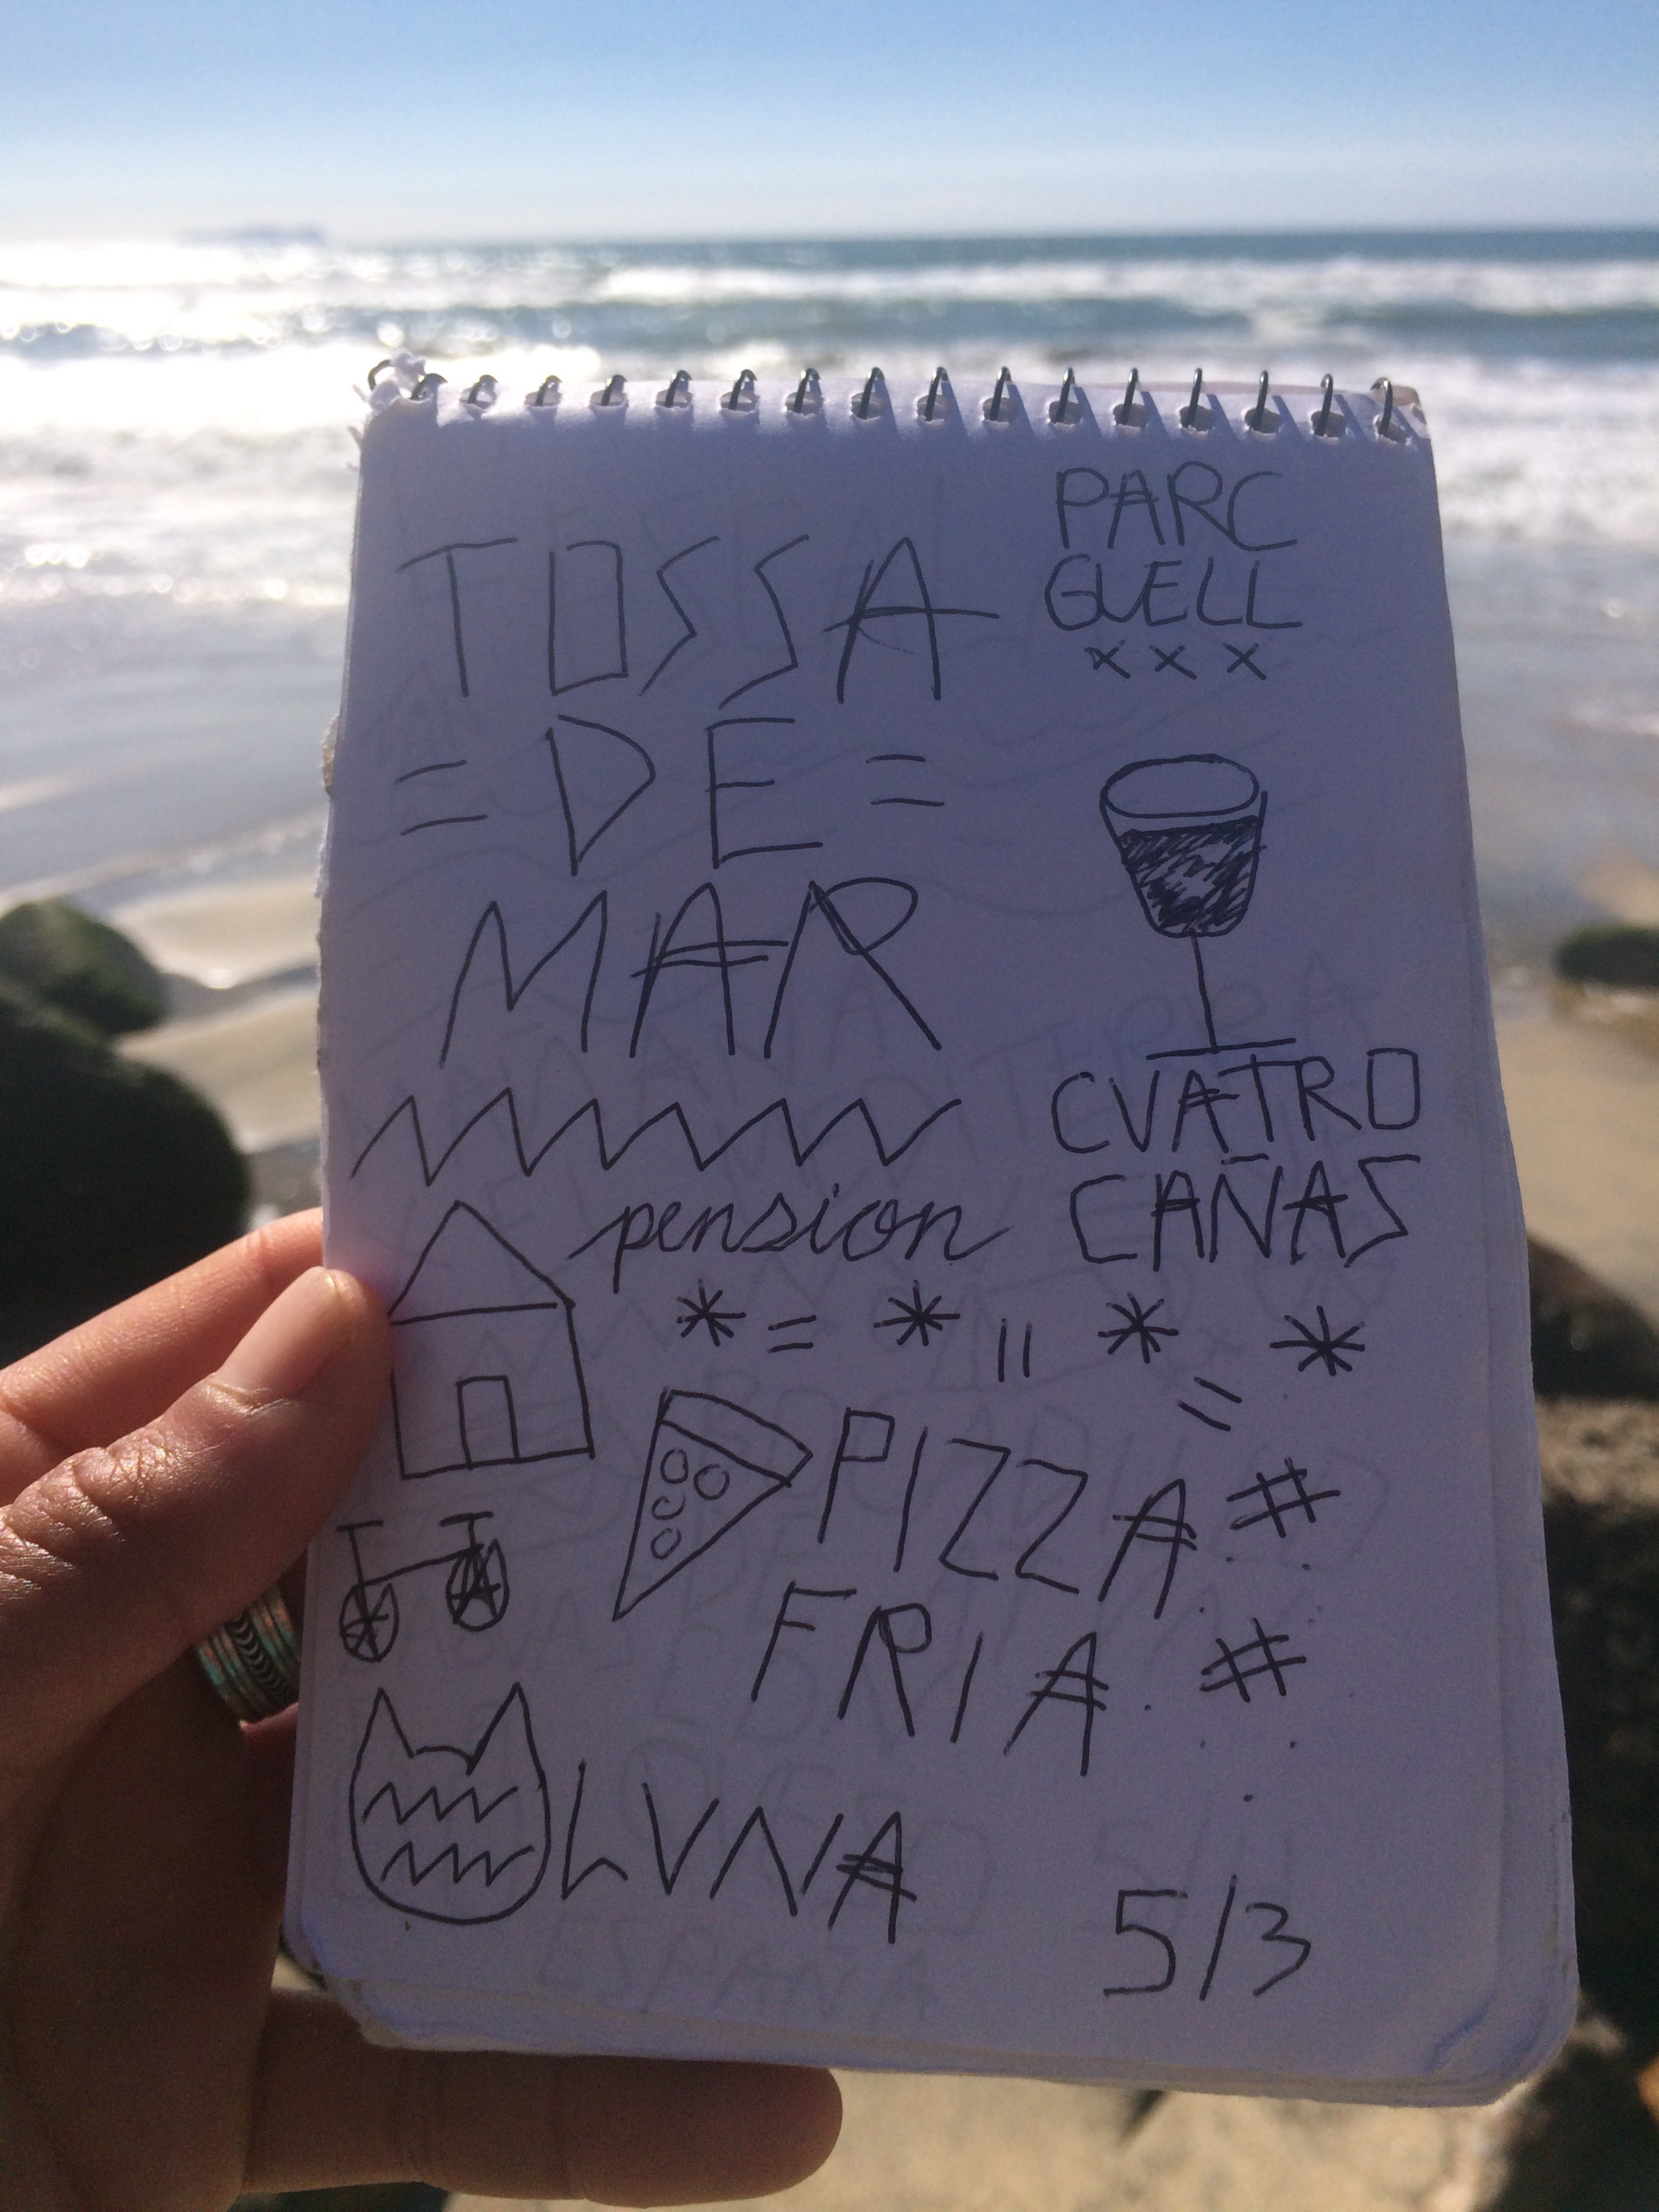 TOSSA
= DE =
MAR
PARC
GUELL
x x x
CUATRO
CAÑAS
pension
* = * || * = *
PIZZA #
FRIA. #
LUNA
5/3
ESPAÑA